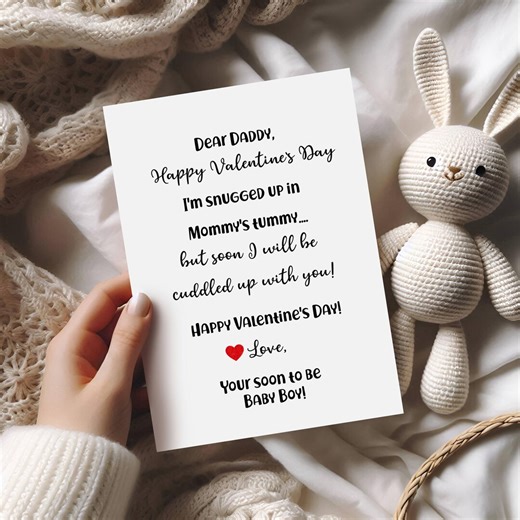 Dear Daddy,
Happy Valentine's Day
I'm snugged up in
Mommy's tummy....
but soon I will be
cuddled up with you!
Happy Valentine's Day!
Love,
Your soon to be
Baby Boy!